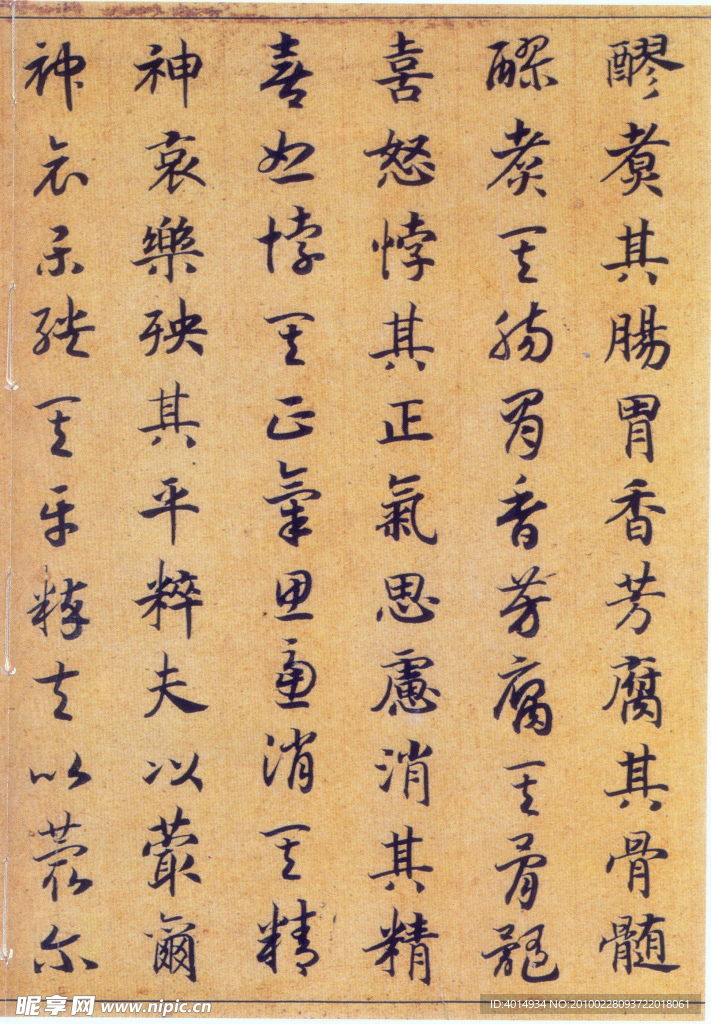 醪煑其腸胃香芳腐其骨髓
醪煑其腸胃香芳腐其骨髓
喜怒悖其正氣思慮消其精
喜怒悖其正氣思慮消其精
神哀樂殃其平粹夫以蕞爾
神哀樂殃其平粹夫以蕞尔
昵享网 www.nipic.cn
ID:4014934 NO:20100228093722018061